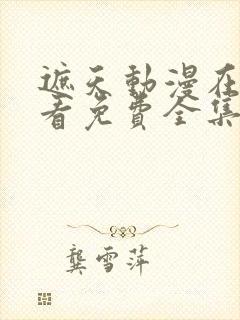 遮天動漫在
看免費全集
龔雪萍